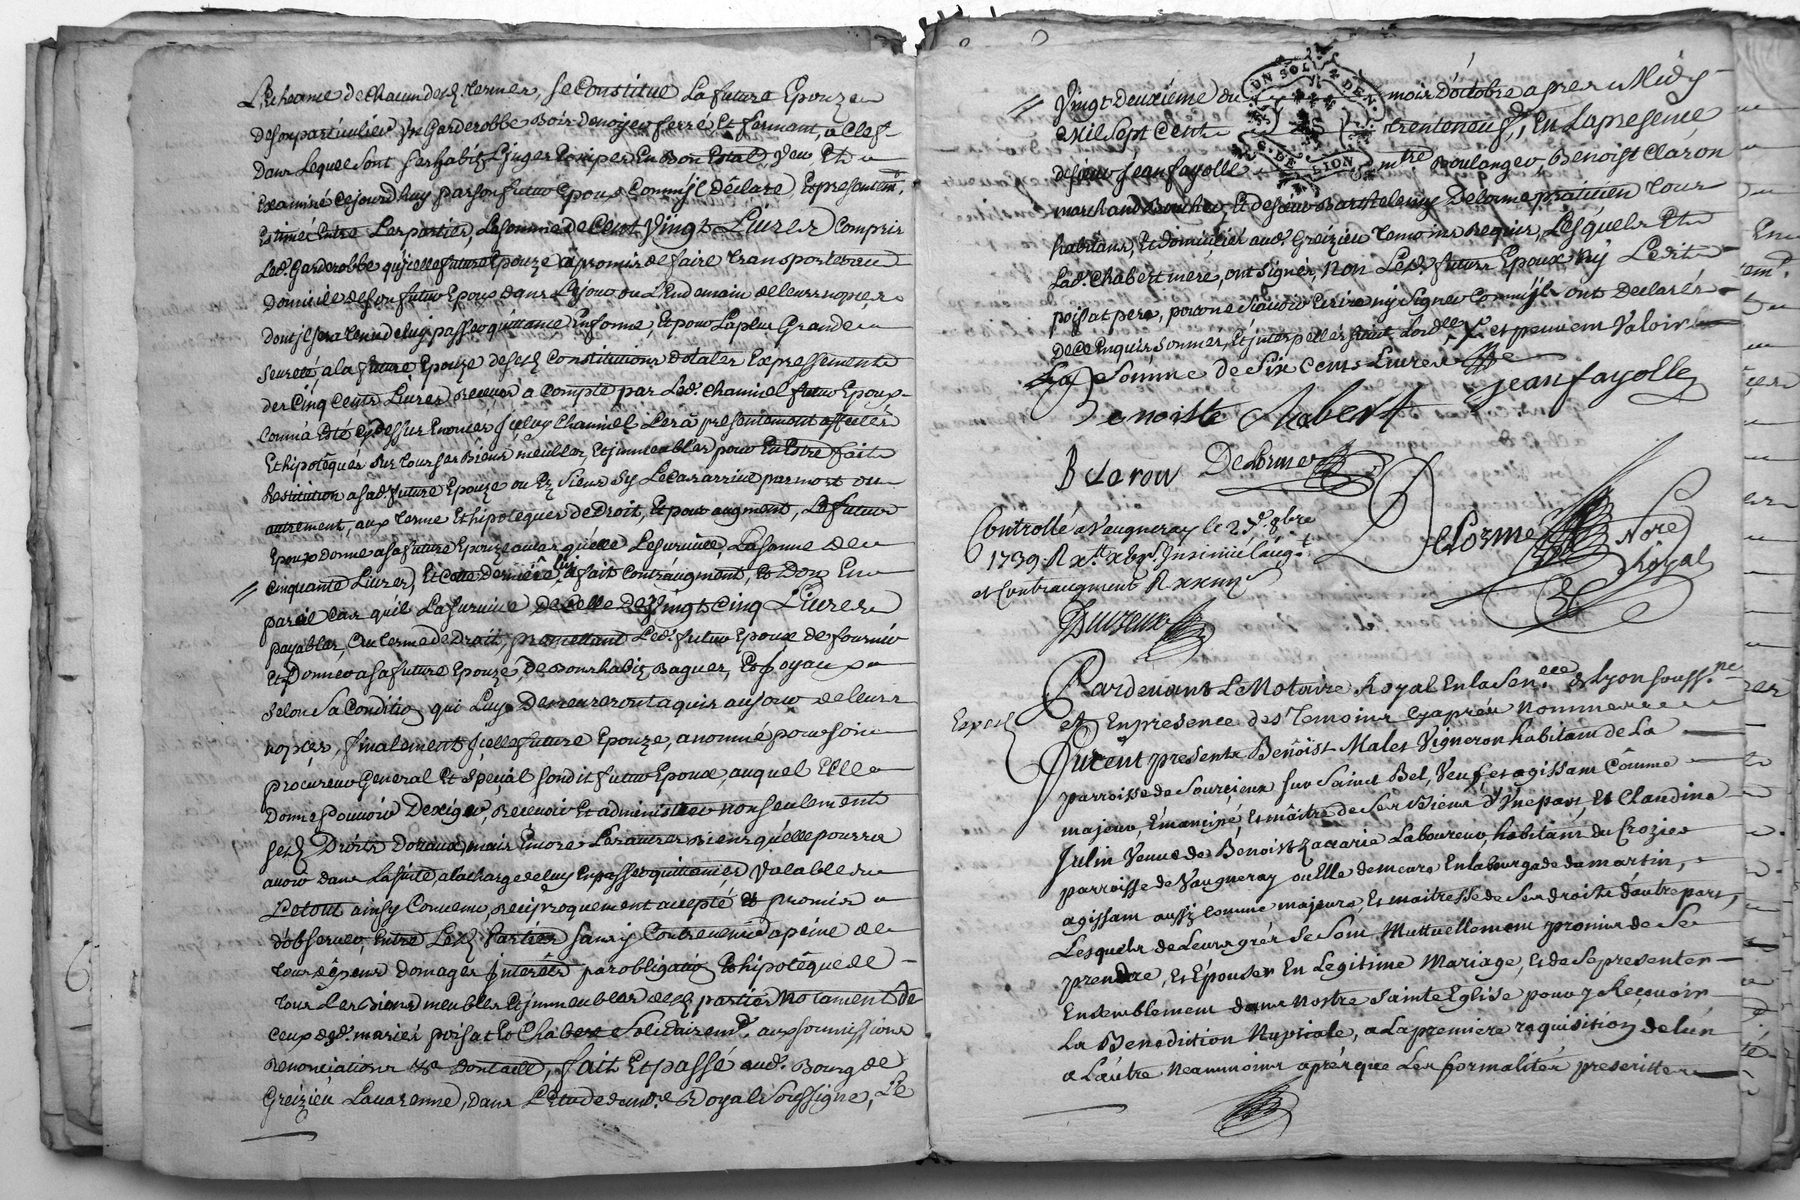 L'Echeance de chacun desd. termes, se Constitue La future Epouze
de son particulier Un Garderobbe Bois de noyer ferré Et fermant, a Clef
dans Lequel sont ses habitz Linges Et nipes En Bon Estat, Veu Et
Examiné cejourd'huy par son futur Epoux Comm'jl déclare, Et presentem.t
Estimés Entre Les parties, La somme de Cent Vingt Livres Compris
Led. Garderobbe qu'icelle future Epouze a promis de faire transporter au
Domicile de son futur Epoux dans Le jour ou L'endemain de leurs nopces
dont jl sera tenu de luy passer quittance En forme, Et pour La plus Grande
seureté, a la future Epouze de sesd. constitutions dotales Expressement
des Cinq Cents Livres Receues a compte par Led. Chamiel futur Epoux
Comm'a Esté cy dessus Enoncé, jceluy Chamiel Les a presentement affectés
Et hipotéqués sur tous ses Biens meubles, Et jmmeubles pour En Estre fait
Restitution a sad. future Epouze ou Ez Siens sy Le Cas arrive par mort ou
autrement, aux terme Et hipoteques de Droit, Et pour augment, Le futur
Epoux Donne a sa future Epouze au cas qu'elle Le survive, La somme de
cinquante Livres, Et cette derniere luy a fait contr'augment, Et Don En
pareil Cas qu'il La survive de Celle de Vingt Cinq Livres
payables, Au terme de Droit, promettant Led. futur Epoux de fournir
Et Donner a sa future Epouze, de Bons habitz Bagues, Et Joyaux
selon Sa Conditio, qui Luy Demeureront aquis au jour de leurs
nopces, finalement jcelle future Epouze, a nommé pour son
procureur General Et Spécial sondit futur Epoux, auquel Elle
Donne Pouvoir D'exiger, Recevoir Et administrer non seulement
sesd. Droits Dotaux, mais Encore Les autres Biens qu'elle pourra
avoir dans La suite, a la charge de luy En passer quittances Valables
Le tout ainsy Convenu, reciproquement accepté Et promis
d'observer Entre Lesd. Parties sans y Contrevenir a peine de
tous dépens domages jnterêts par obligatio Et hipotêque de
tous Les Biens meubles Et jmmeubles desd. parties Notament de
Ceux desd. mariés poisat Et Chabert Solidairem.t aux soumissions
Renonciations Et dont acte, fait Et passé aud. Bourg de
Greizieu Lavarenne, dans L'Etude dud. no.re Royal Soussigné, Le
Vingt Deuxiéme du mois D'octobre apres Midy
mil sept cent trente neuf, En La presence
de sieur Jean fayolle m.tre Boulanger, Benoist Claron
marchand Boucher, Et de sieur Barthelemy Delorme praticien tous
habitans, Et domiciliés aud. Greizieu temoins Requis, Lesquels Et
Lad. Chabert mere, ont signés, Non Lesd. futurs Epoux ny Ledit
poisat pere, pour ne sçavoir Ecrire ny Signer Comm'jls ont Declarés
de ce Enquis, sommés, Et jnterpellés Et peuvent Valoir
La Somme de Six cents Livres
Jean fayolle
Benoiste Chabert
B Claron Delorme
Delorme No.re Royal
Controllé a Vaugneray le 8bre
1739 R Insinué l'aug.t
et Contraugment R
Pardevant Le Notaire Royal En la Sen.ccé de Lyon souss.né
et En presence des Temoins cy apres Nommes
Expedié
furent presents Benôist Males Vigneron habitant de La
parroisse de Sourcieux sur Saint Bel, Veuf et agissant Cômme
majeur, Emancipé, Et maître de Ses Biens d'Une part, Et Claudine
Julin Veuve de Benoist Zacarie Laboureur, habitant du Crozier
parroisse de Vaugneray ou Elle demeure En la bourgade de martin,
agissant aussi Comme majeure, Et maitresse de Ses droits d'autre part,
Lesquels de Leurs grés Se Sont Muttuellement promis de Se
prendre, Et Epouser En Legitime Mariage, Et de Se presenter
Ensemblement dans Nostre Sainte Eglise pour y Recevoir
La Benediction Nuptiale, a La premiere requisition de L'un
a L'autre Neanmoins aprés que Les formalités prescrittes